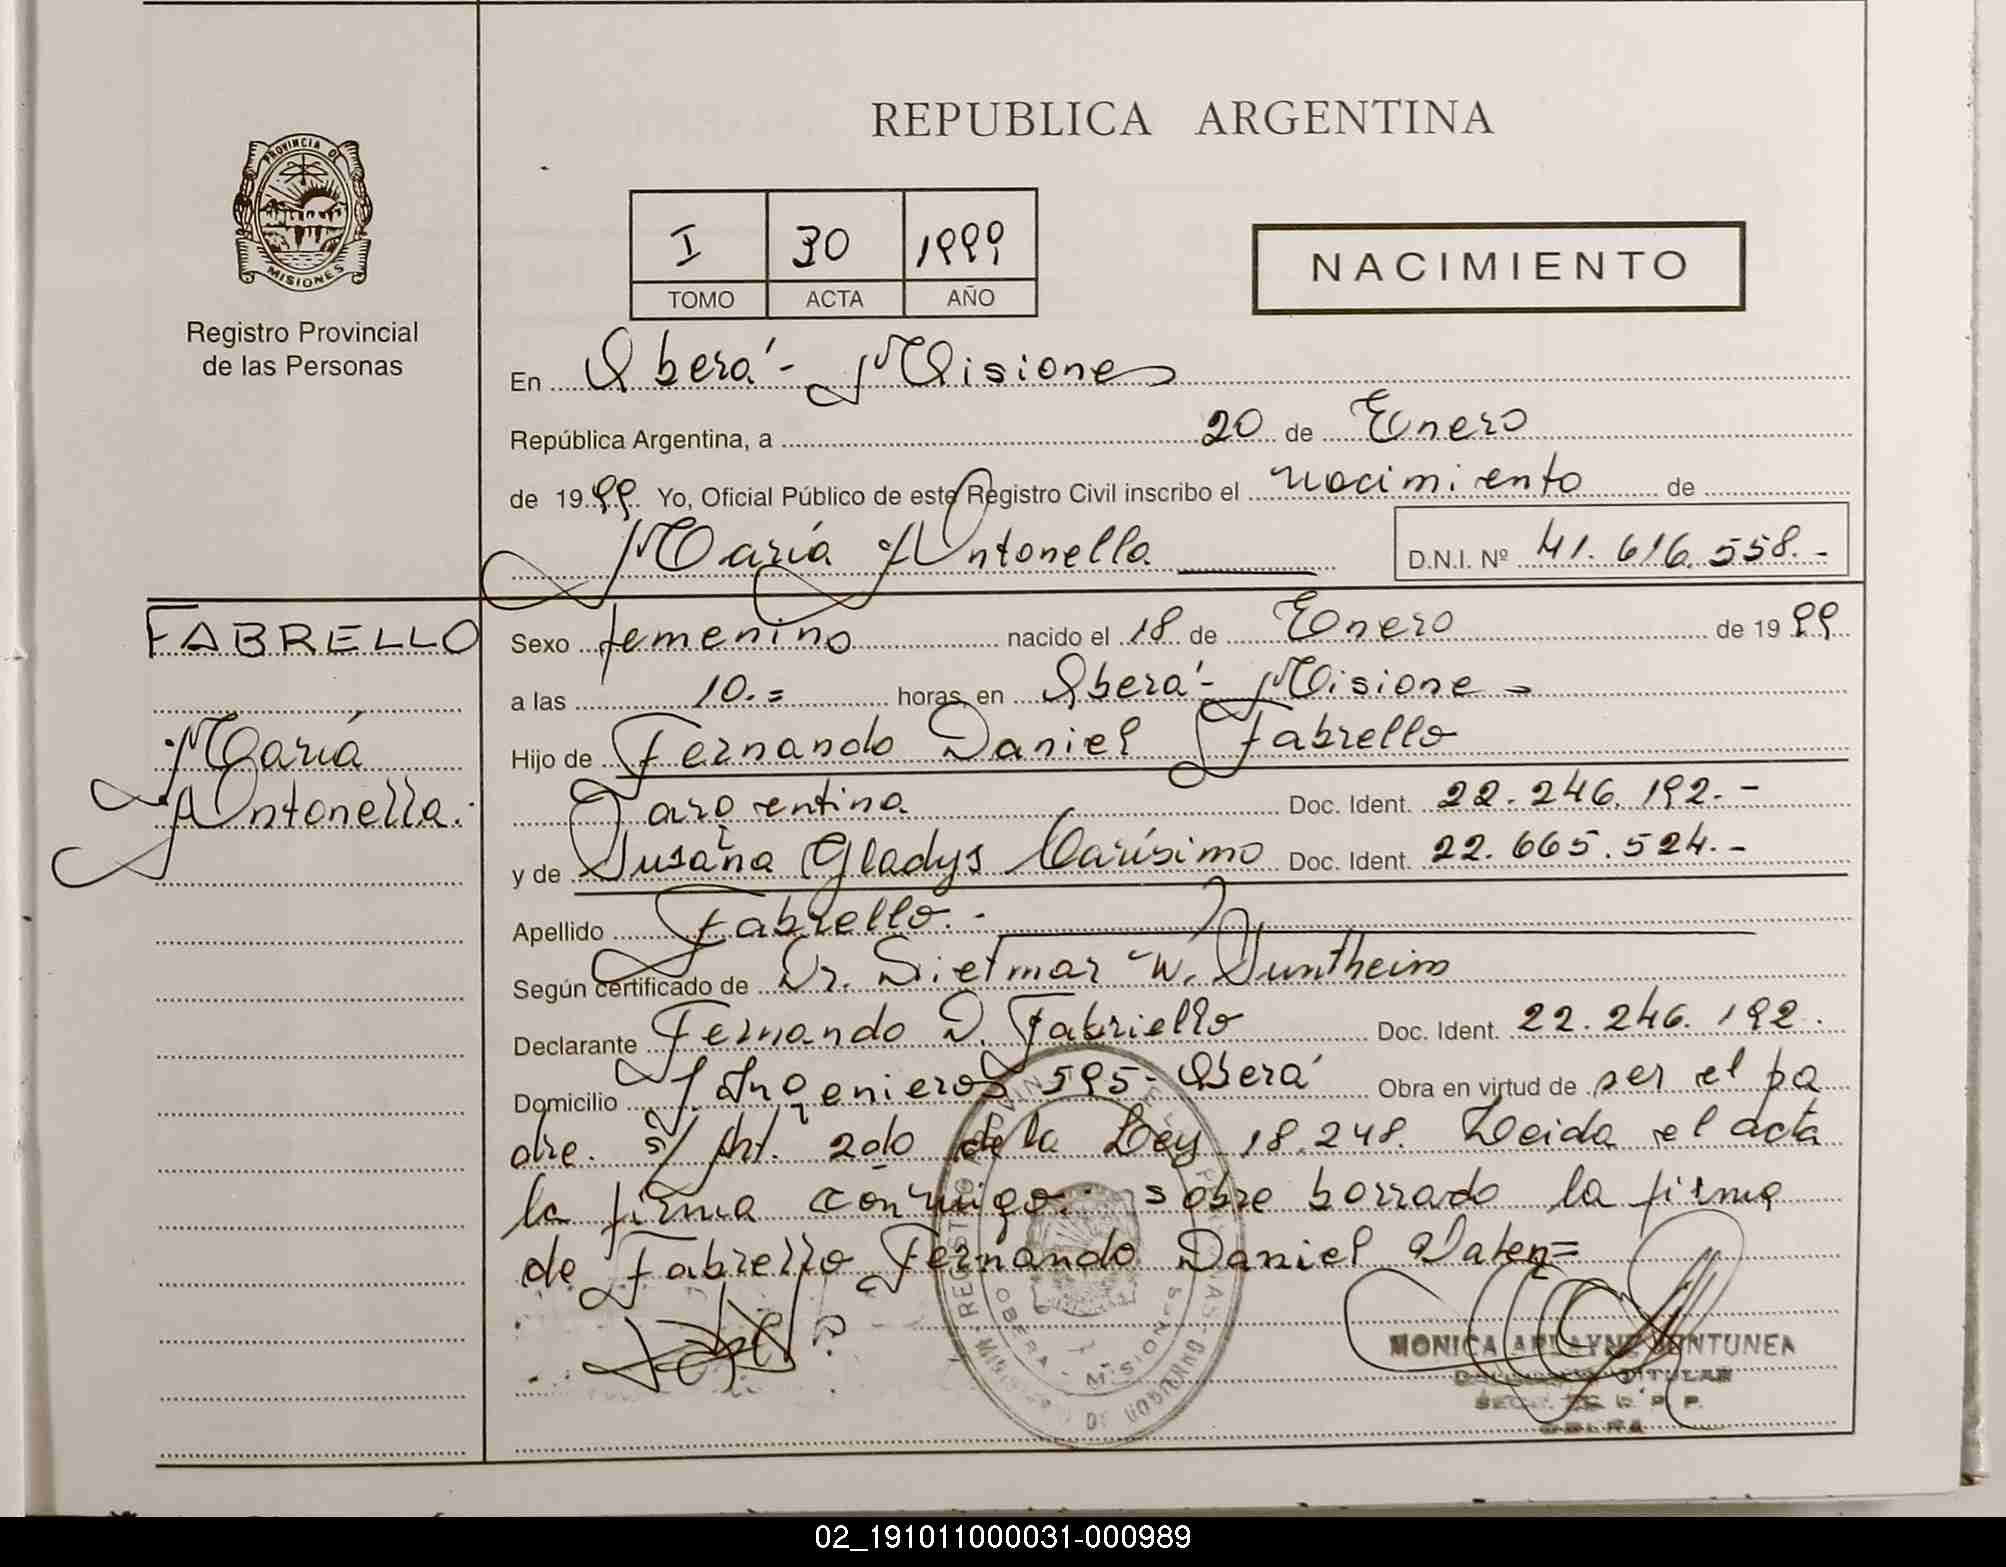 REPUBLICA ARGENTINA
PROVINCIA DE
MISIONES
Registro Provincial
de las Personas
I 30 1999
TOMO ACTA AÑO
NACIMIENTO
En Oberá - Misiones
República Argentina, a 20 de Enero
de 1999 Yo, Oficial Público de este Registro Civil inscribo el nacimiento de
María Antonella D.N.I. Nº 41.616.558.-
FABRELLO
María
Antonella.
Sexo femenino nacido el 18 de Enero de 1999
a las 10.= horas en Oberá - Misiones
Hijo de Fernando Daniel Fabrello
argentina Doc. Ident. 22.246.192.-
y de Susana Gladys Carísimo Doc. Ident. 22.665.524.-
Apellido Fabrello.-
Según certificado de Dr. Dietmar W.
Declarante Fernando D. Fabriello Doc. Ident. 22.246.192.
Domicilio J. Ingenieros 595 - Oberá Obra en virtud de ser el pa
dre. s/ Art. 2do de la Ley 18.248. Leida el acta
la firma conmigo. sobre borrado la firma
de Fabrello Fernando Daniel Valen=
REGISTRO PROVINCIAL DE LAS PERSONAS
OBERA - MISIONES
MINISTERIO DE GOBIERNO
MONICA
TITULAR
02_191011000031-000989